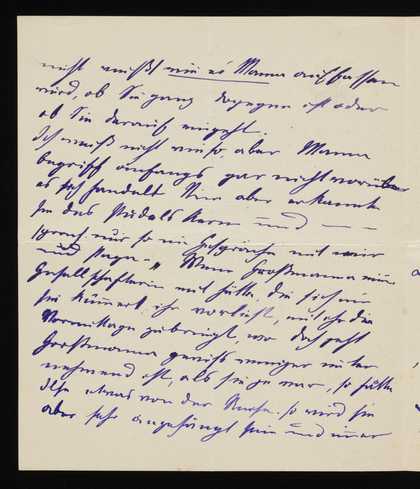 nicht weißt wie es Mama auffassen
wird, ob Sie ganz dagegen ist oder
ob Sie darauf eingeht.
Ich weiß nicht wieso, aber Mama
begriff anfangs gar nicht worüber
es sich handelt. Nun aber erkannte
Sie des Pudels Kern und — —
sprach nur so ein Gespräch mit mir
und Papa. „Wenn Großmama eine
Gesellschafterin mit hätte, die sich um
sie kümmert ihr vorliest, mit ihr die
Vormittage zubringt, wo doch jetzt
Großmama gewiß weniger unter
nehmend ist, als sie je war, so hätte
Ilse etwas von der Reise. so wird sie
aber sehr angehängt sein und immer